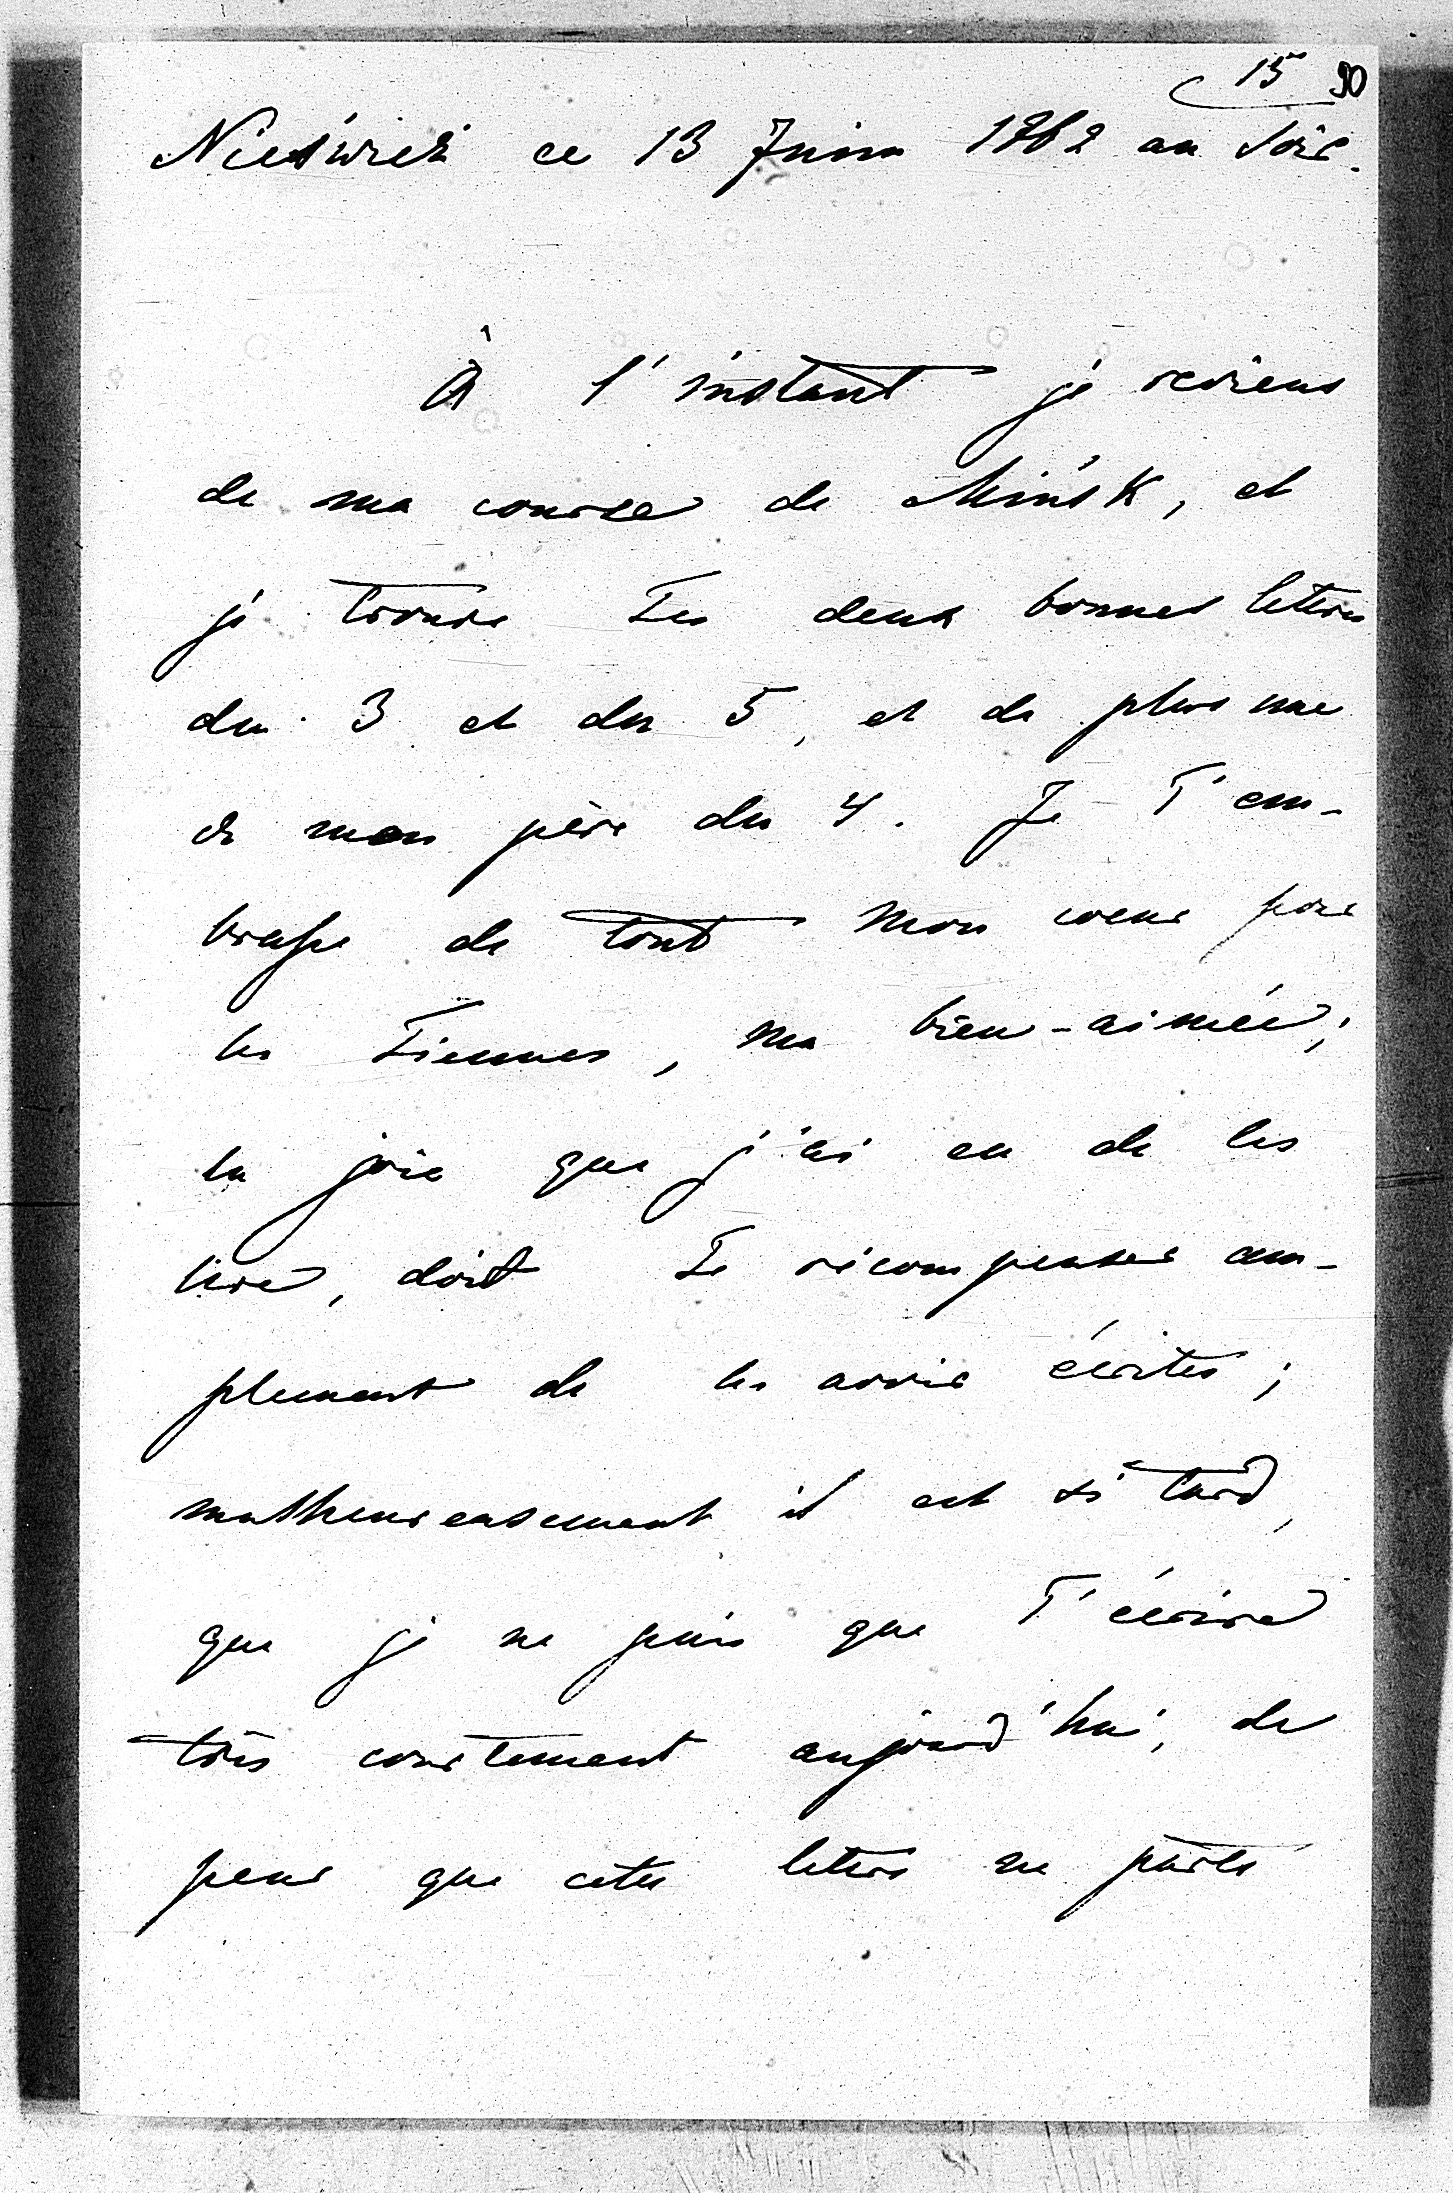 15 90
Nieśwież ce 13 Juin 1862 au Soir.
À l'instant je reviens
de ma course de Mińsk, et
je trouve Tes deux bonnes letres
du 3 et du 5, et de plus une
de mon père du 4. Je T'em-
brasse de tout mon coeur pour
les Tiennes, ma bien-aimée;
la joie que j'ai eu de les
lire, doit Te récompenser am-
plement de les avoir écrites;
malheureusement il est si tard,
que je ne puis que T'écrire
très courtement aujourd'hui, de
peur que cete letre ne parte